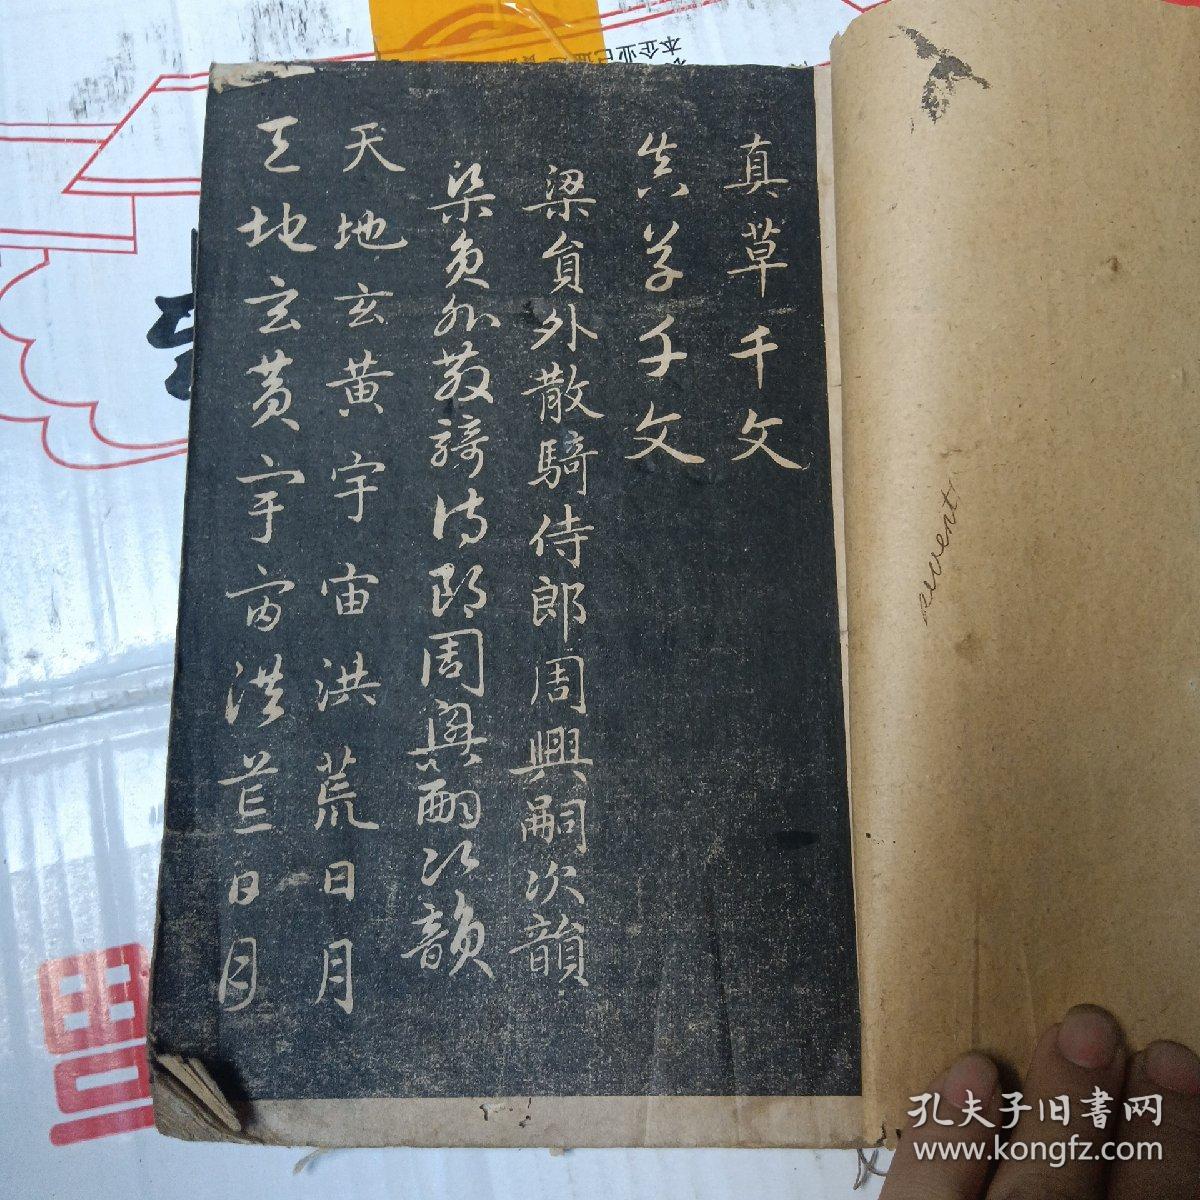 真草千文
真草千文
梁員外散騎侍郎周興嗣次韻
梁員外散騎侍郎周興嗣次韻
天地玄黃宇宙洪荒日月
天地玄黃宇宙洪荒日月
孔夫子旧书网
www.kongfz.com